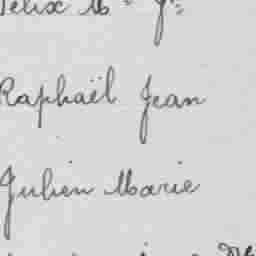 Félix M
Raphaël Jean
Julien Marie